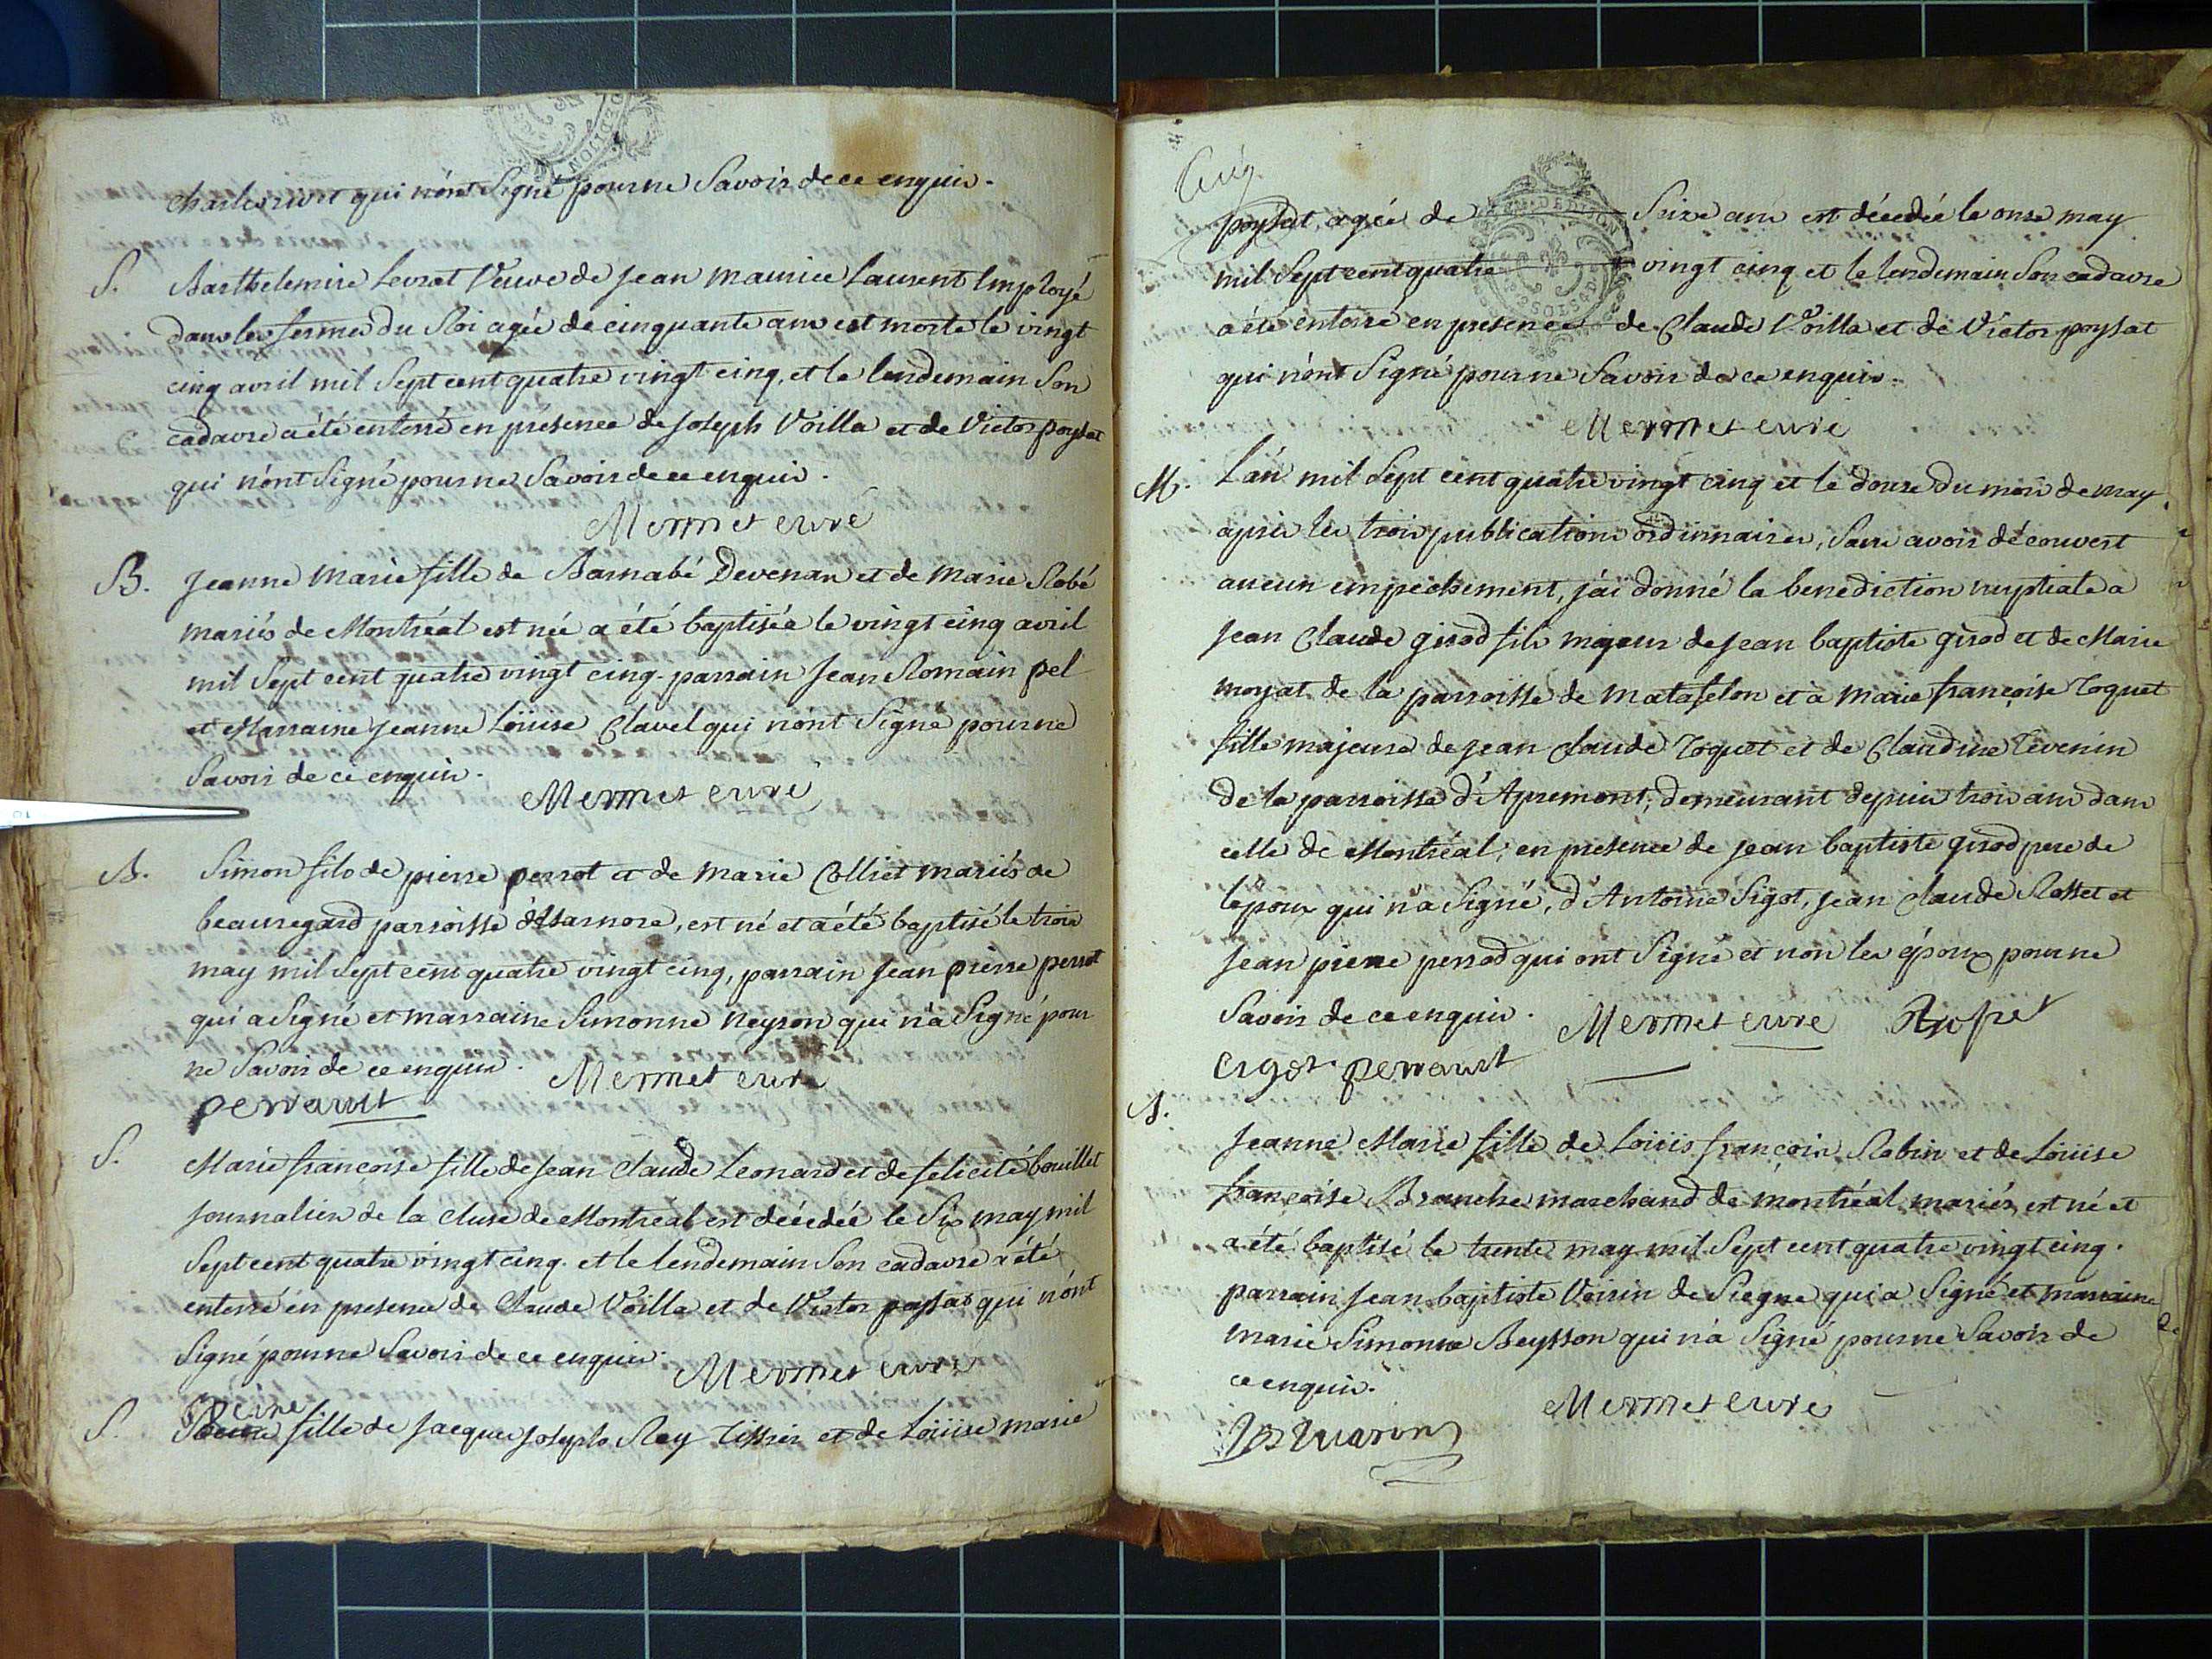 charles rivet qui n'ont signé pour ne savoir de ce enquis.
S. Barthelemie Levrat veuve de jean maurice Laurent Employé
dans les fermes du Roi agée de cinquante ans est morte le vingt
cinq avril mil sept cent quatre vingt cinq, et le lendemain son
cadavre a été enterré en présence de joseph Voilla et de Victor poysat
qui n'ont signé pour ne savoir de ce enquis.
Mermet curé
B. jeanne marie fille de Barnabé Devenan et de marie Robé
mariés de Montréal est née a été baptisée le vingt cinq avril
mil sept cent quatre vingt cinq. parrain jean Romain pel
et Marraine jeanne Loüise Clavel qui n'ont signé pour ne
savoir de ce enquis.
Mermet curé
B. Simon fils de pierre perrot et de marie Colliet mariés de
beauregard parroisse d'Isarnore, est né et a été baptisé le trois
may mil sept cent quatre vingt cinq, parrain jean pierre perrot
qui a signé et marraine Simonne neyron qui n'a signé pour
ne savoir de ce enquis. Mermet curé
perrault
S. Marie françoise fille de jean claude Leonard et de felicité bouillet
journalier de la cluse de Montréal est décédée le six may mil
sept cent quatre vingt cinq. et le lendemain son cadavre a été
enterré en presence de claude Voilla et de Victor poysat qui n'ont
signé pour ne savoir de ce enquis.
Mermet curé
S. Reine fille de jacque joseph Rey tissier et de Loüise marie
poysat, agée de seize ans est décedée le onze may
mil sept cent quatre vingt cinq et le lendemain son cadavre
a été enterré en presence de claude Voilla et de Victor poysat
qui n'ont signé pour ne savoir de ce enquis.
Mermet curé
M. L'an mil sept cent quatre vingt cinq et le douze du mois de may,
après les trois publications ordinnaires, sans avoir découvert
aucun empechement, j'ai donné la benediction nuptiale a
jean claude girod fils majeur de jean baptiste girod et de Marie
moyat de la parroisse de matafelon et à marie françoise Toquet
fille majeure de jean claude Toquet et de Claudine Tevenin
de la parroisse d'Apremont, demeurant depuis trois ans dans
celle de Montréal; en presence de jean baptiste girod pere de
l'époux qui n'a signé, d'Antoine Sigot, jean claude Rosset et
jean pierre perrod qui ont signé et non les époux pour ne
savoir de ce enquis. Mermet curé Rosset
cigot perrault
B.
jeanne Marie fille de Loüis françois Robin et de Loüise
françoise Branche marchand de montréal mariés, est né et
a été baptisé le trente may mil sept cent quatre vingt cinq.
parrain jean baptiste Voisin de Siegne qui a signé et marraine
marie Simonne Beysson qui n'a signé pour ne savoir de
ce enquis.
Mermet curé